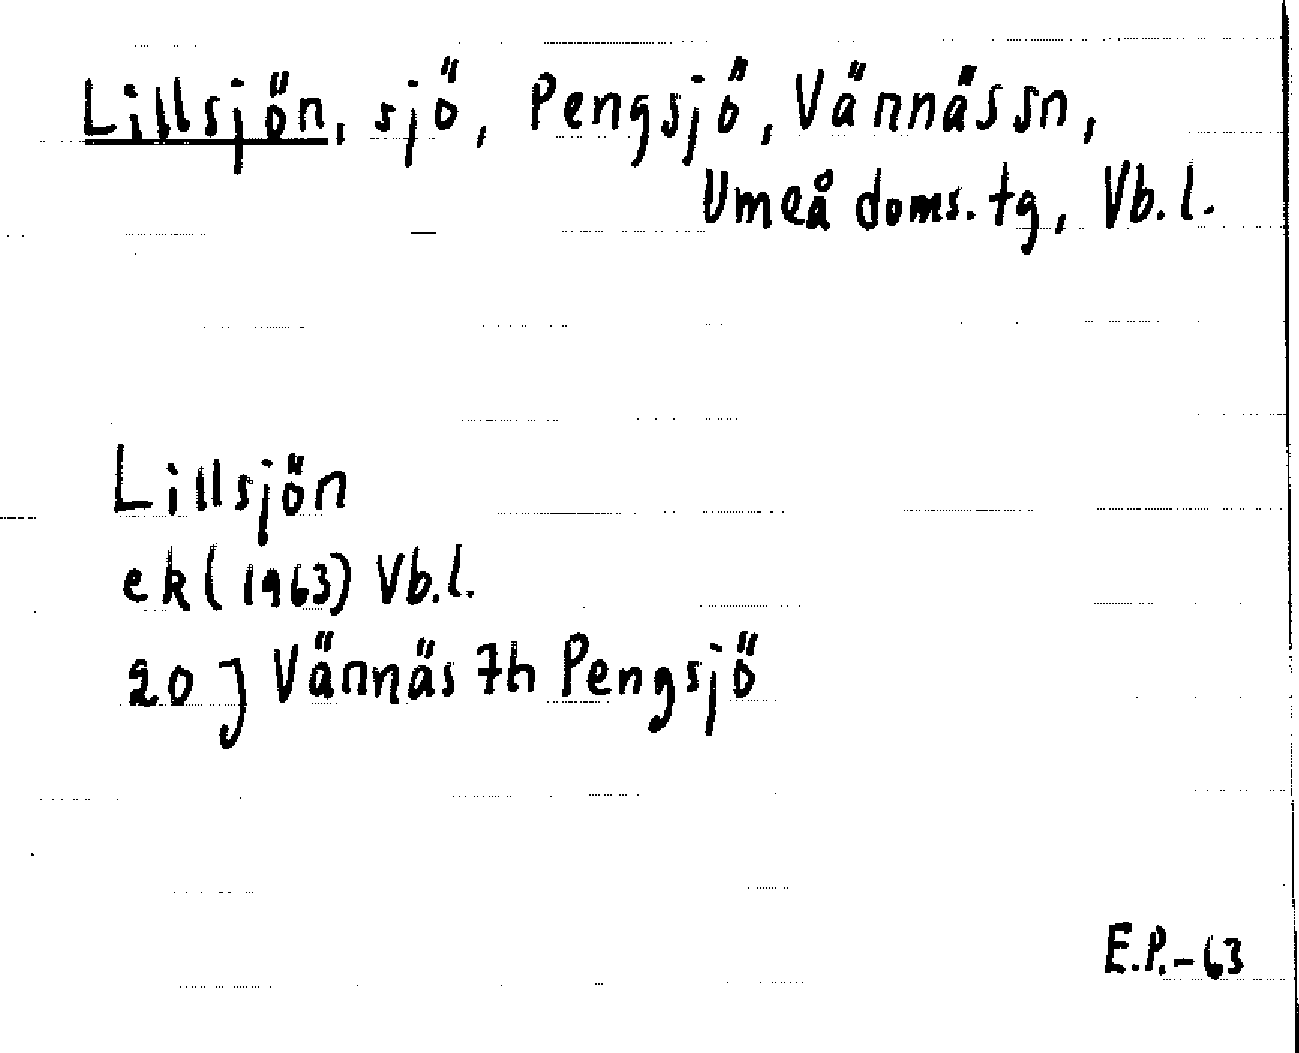 Lillsjön, sjö, Pengsjö, Vännäs sn,
Umeå doms. tg, Vb. l.
Lillsjön
ek (1963) Vb. l.
20 J Vännäs 7h Pengsjö
E.P.-63